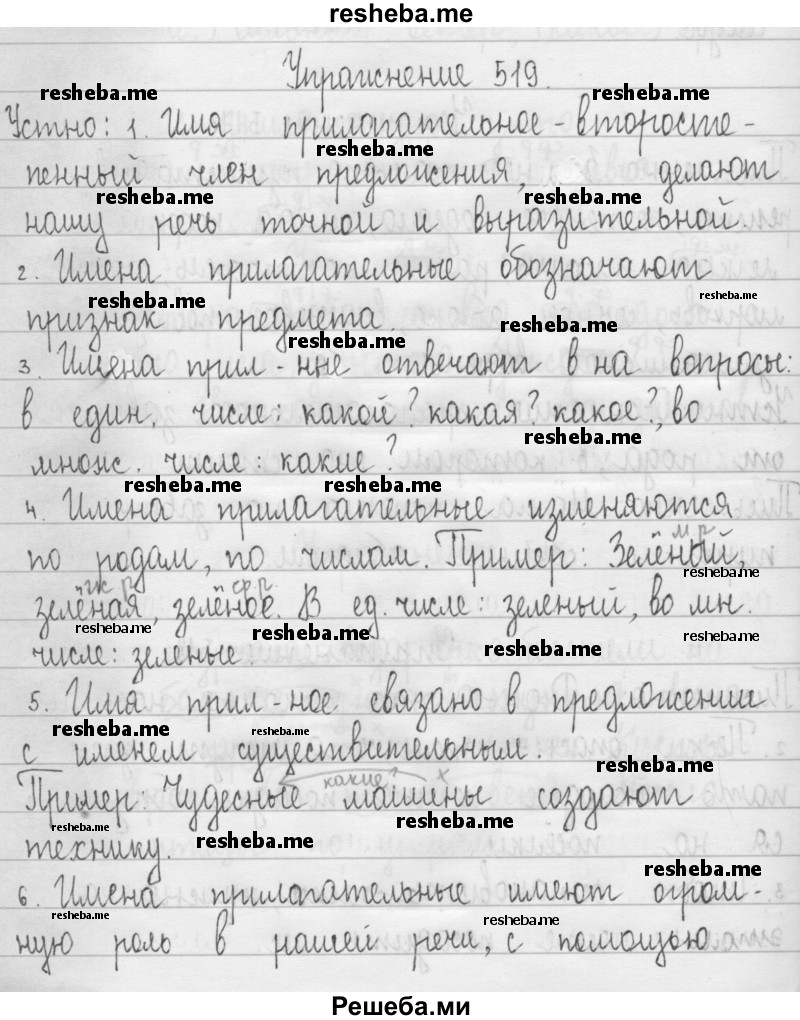 resheba.me
Упражнение 519.
resheba.me resheba.me
Устно: 1. Имя прилагательное - второсте-
resheba.me
пенный член предложения, делают
resheba.me resheba.me
нашу речь точной и выразительной.
2. Имена прилагательные обозначают
resheba.me resheba.me
признак предмета.
resheba.me resheba.me
3. Имена прил-ные отвечают в на вопросы:
в един. числе: какой? какая? какое?, во
resheba.me
множ. числе: какие?
resheba.me resheba.me
4. Имена прилагательные изменяются
по родам, по числам. Пример: Зелёный,
м.р.
resheba.me
ж.р. ср.р.
зелёная, зелёное. В ед. числе: зеленый, во мн.
resheba.me resheba.me resheba.me
числе: зеленые.
5. Имя прил-ное связано в предложении
resheba.me resheba.me
с именем существительным.
resheba.me
какие? х
Пример: Чудесные машины создают
resheba.me resheba.me resheba.me
технику.
resheba.me
6. Имена прилагательные имеют огром-
resheba.me resheba.me
ную роль в нашей речи, с помощью
Решеба.ми